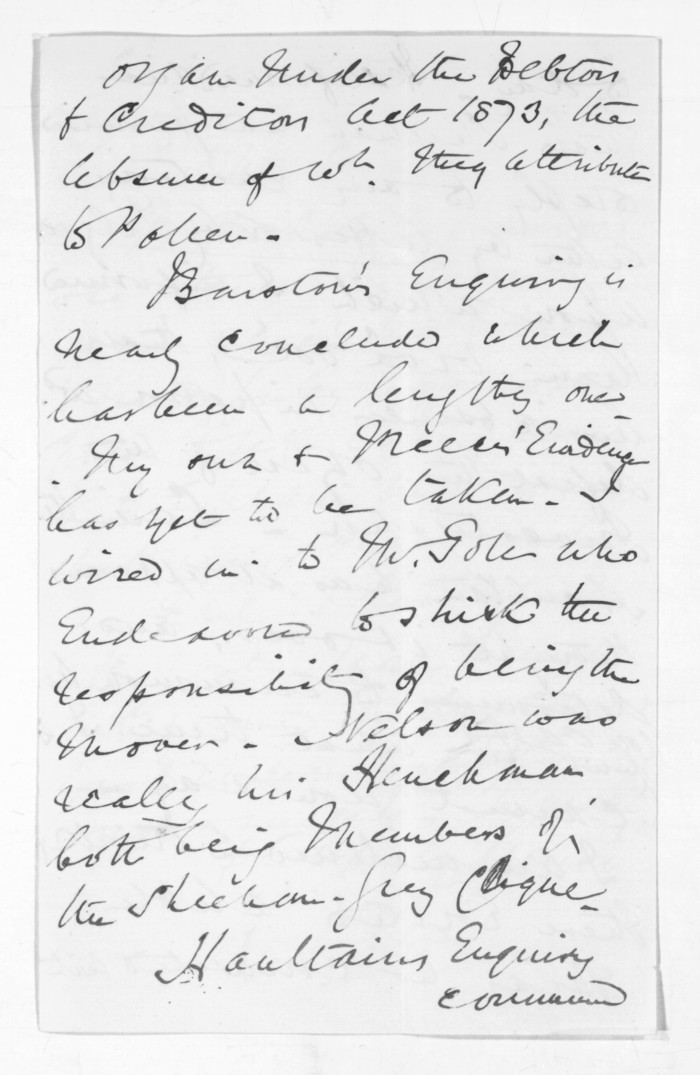 organ under the Debtors
& Creditors Act 1873, the
absence of wh. they attribute
to
Barstow's Enquiry is
nearly concluded which
has been a lengthy one
My own & Evidence
has yet to be taken - I
wired in to Mr. who
Endeavored to shirk the
responsibility of being the
Mover - Nelson was
really his Henchman
both being Members of
the Sheehan-Grey Clique -
Haultains Enquiry